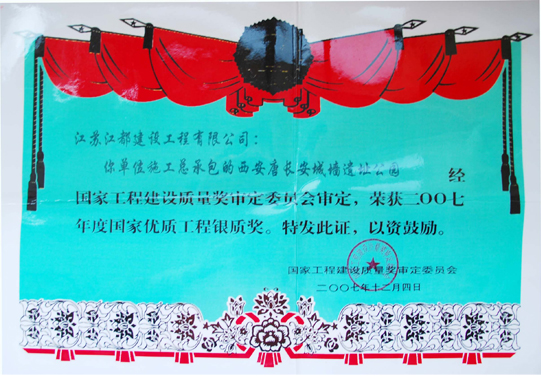 江苏江都建设工程有限公司:
你单位施工总承包的西安唐长安城墙遗址公园 经
国家工程建设质量奖审定委员会审定,荣获二〇〇七
年度国家优质工程银质奖。特发此证,以资鼓励。
国家工程建设质量奖审定委员会
二〇〇七年十二月四日